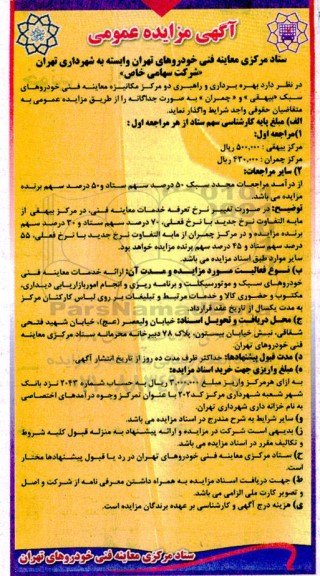 آگهی مزایده عمومی
ستاد مرکزی معاینه فنی خودروهای تهران وابسته به شهرداری تهران
«شرکت سهامی خاص»
در نظر دارد بهره برداری و راهبری دو مرکز مکانیزه معاینه فنی خودروهای
سبک «بیهقی » و « چمران » به صورت جداگانه را از طریق مزایده عمومی به
متقاضیان حقوقی واجد شرایط واگذار نماید.
الف) مبلغ پایه کارشناسی سهم ستاد از هر مراجعه اول :
۱)مراجعه اول:
مرکز بیهقی : ۵۰۰،۰۰۰ ریال
مرکز چمران : ۴۳۰،۰۰۰ ریال
۲) سایر مراجعات:
از درآمد مراجعات مجدد سبک ۵۰ درصد سهم ستاد و۵۰ درصد سهم برنده
مزایده می باشد.
توضیح: در صورت تغییر نرخ تعرفه خدمات معاینه فنی، در مرکز بیهقی از
مابه التفاوت نرخ جدید با نرخ فعلی، ۷۰ درصد سهم ستاد و ۳۰ درصد سهم
برنده مزایده و در مرکز چمران از مابه التفاوت نرخ جدید با نرخ فعلی، ۵۵
درصد سهم ستاد و ۴۵ درصد سهم برنده مزایده خواهد بود.
سایر موارد طبق اسناد مزایده می باشد.
ب) نوع فعالیت مورد مزایده و مدت آن: ارائه خدمات معاینه فنی
خودروهای سبک و موتورسیکلت و برنامه ریزی و انجام اموربازاریابی دیداری،
مکتوب و حضوری کالا و خدمات مرتبط و تبلیغات بر روی لباس کارکنان مرکز
به مدت یکسال از تاریخ عقد قرارداد.
ج) محل دریافت و تحویل اسناد: خیابان ولیعصر (عج)، خیابان شهید فتحی
شقاقی، نبش خیابان بیستون، پلاک ۷۸ دبیرخانه محرمانه ستاد مرکزی معاینه
فنی خودروهای تهران
د) مدت قبول پیشنهادها: حداکثر ظرف مدت ده روز از تاریخ انتشار آگهی.
ه) مبلغ واریزی جهت خرید اسناد مزایده:
به ازای هرمرکز واریز مبلغ ۳،۰۰۰،۰۰۰ ریال به حساب شماره ۲۰۴۳ نزد بانک
شهر شعبه شهرداری مرکز کد۲۰۲ با عنوان تمرکز وجوه درآمدهای اختصاصی
به نام خزانه داری شهرداری تهران
و) سایر شرایط به شرح مندرج در اسناد مزایده می باشد.
ز) بدیهی است شرکت در مزایده و ارائه پیشنهاد به منزله قبول کلیه شروط
و تکالیف مقرر در اسناد مزایده می باشد.
ح) ستاد مرکزی معاینه فنی خودروهای تهران در رد یا قبول پیشنهادها مختار
است.
ط) جهت دریافت اسناد مزایده به همراه داشتن معرفی نامه از شرکت و اصل
و تصویر کارت ملی الزامی می باشد.
ی) هزینه درج آگهی و کارشناسی بر عهده برندگان مزایده است.
ستاد مرکزی معاینه فنی خودروهای تهران